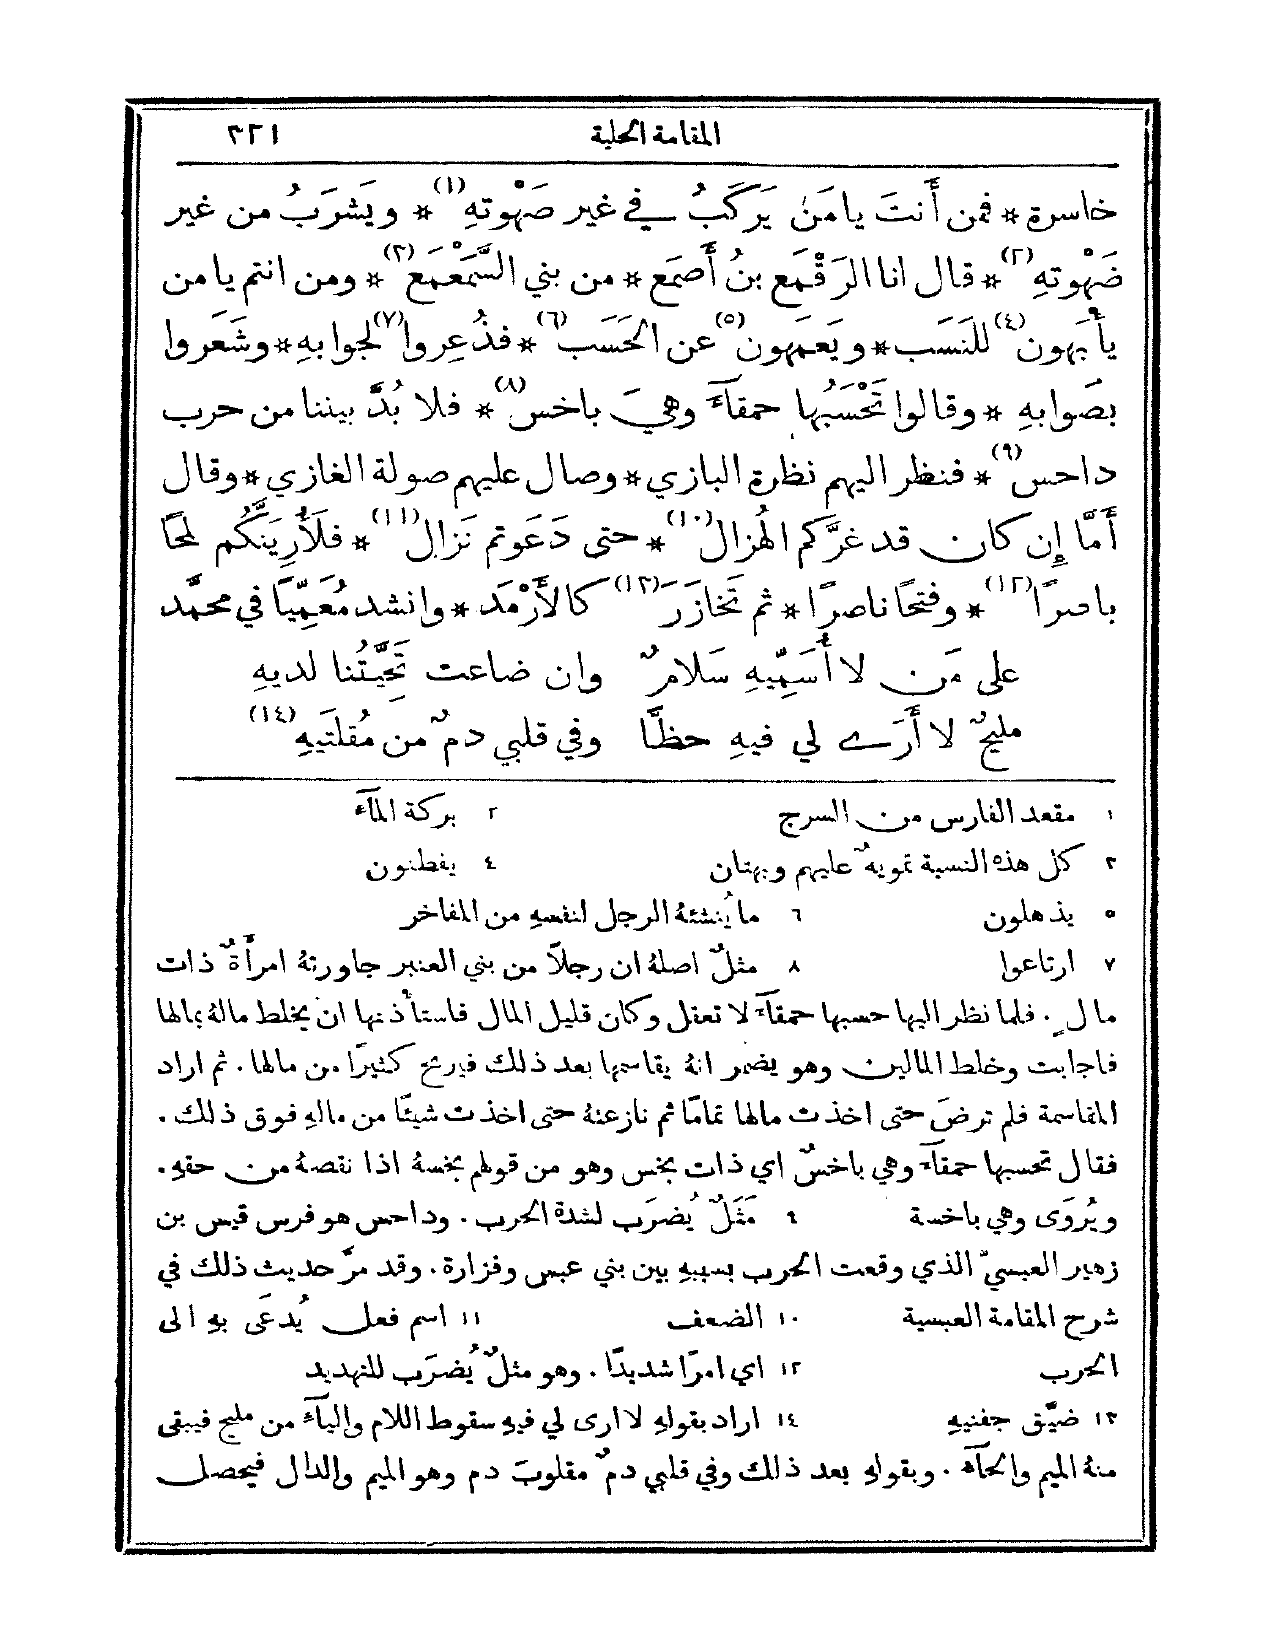 المقامة الحلبية ٣٢١
خاسرة * فمن أَنتَ يا مَن يَركَبُ في غير صَهْوتهِ (١) * ويَشرَبُ من غير
ضَهْوتهِ (٢) * قال انا الرَقْمَع بنُ أَصمَع * من بني السَّمَعمَع (٣) * ومن انتم يا من
يأبَهون (٤) للنَسَب * ويَعمَهون (٥) عن الحَسَب (٦) * فذُعِروا (٧) لجوابهِ * وشَعَروا
بصَوابهِ * وقالوا تَحْسَبُها حمقآءَ وهيَ باخس (٨) * فلا بُدَّ بيننا من حرب
داحس (٩) * فنظر اليهم نظرة البازي * وصال عليهم صولة الغازي * وقال
أَمَّا إِن كان قد غرَّكم الهُزال (١٠) * حتى دَعَوتم نَزال (١١) * فلَأُرِيَنَّكم لمحًا
باصرًا (١٢) * وفتحًا ناصرًا * ثم تَخازَرَ (١٣) كالأَرْمَد * وانشد مُعَمِّيًا في محمَّد
على مَن لا أُسَمِّيهِ سَلامٌ وان ضاعت تَحِيَّتُنا لديهِ
مليحٌ لا أَرَى لي فيهِ حظًّا وفي قلبي دمٌ من مُقلَتيهِ (١٤)
١ مقعد الفارس من السرج ٢ بركة المآء
٣ كل هذه النسبة تمويهٌ عليهم وبهتان ٤ يفطنون
٥ يذهلون ٦ ما يُنشئهُ الرجل لنفسهِ من المفاخر
٧ ارتاعوا ٨ مثلٌ اصلهُ ان رجلاً من بني العنبر جاورتهُ امرأَةٌ ذات
مالٍ . فلما نظر اليها حسبها حمقآءَ لا تعقل وكان قليل المال فاستأذنها ان يخلط مالهُ بمالها
فاجابت وخلط المالين وهو يضمر انهُ يقاسمها بعد ذلك فيربح كثيرًا من مالها . ثم اراد
المقاسمة فلم ترضَ حتى اخذت مالها تمامًا ثم نازعتهُ حتى اخذت شيئًا من مالهِ فوق ذلك .
فقال تحسبها حمقآءَ وهي باخسٌ اي ذات بخس وهو من قولهم بخسهُ اذا نقصهُ من حقهِ .
ويُروَى وهي باخسة ٩ مَثَلٌ يُضرَب لشدة الحرب . وداحس هو فرس قيس بن
زهير العبسيّ الذي وقعت الحرب بسببهِ بين بني عبس وفزارة . وقد مرَّ حديث ذلك في
شرح المقامة العبسية ١٠ الضعف ١١ اسم فعل يُدعَى بهِ الى
الحرب ١٢ اي امرًا شديدًا . وهو مثلٌ يُضرَب للتهديد
١٣ ضيَّق جفنيهِ ١٤ اراد بقولهِ لا ارى لي فيهِ سقوط اللام واليآءَ من مليح فيبقى
منهُ الميم والحآءَ . وبقولهِ بعد ذلك وفي قلبي دمٌ مقلوبَ دم وهو الميم والدال فيحصل